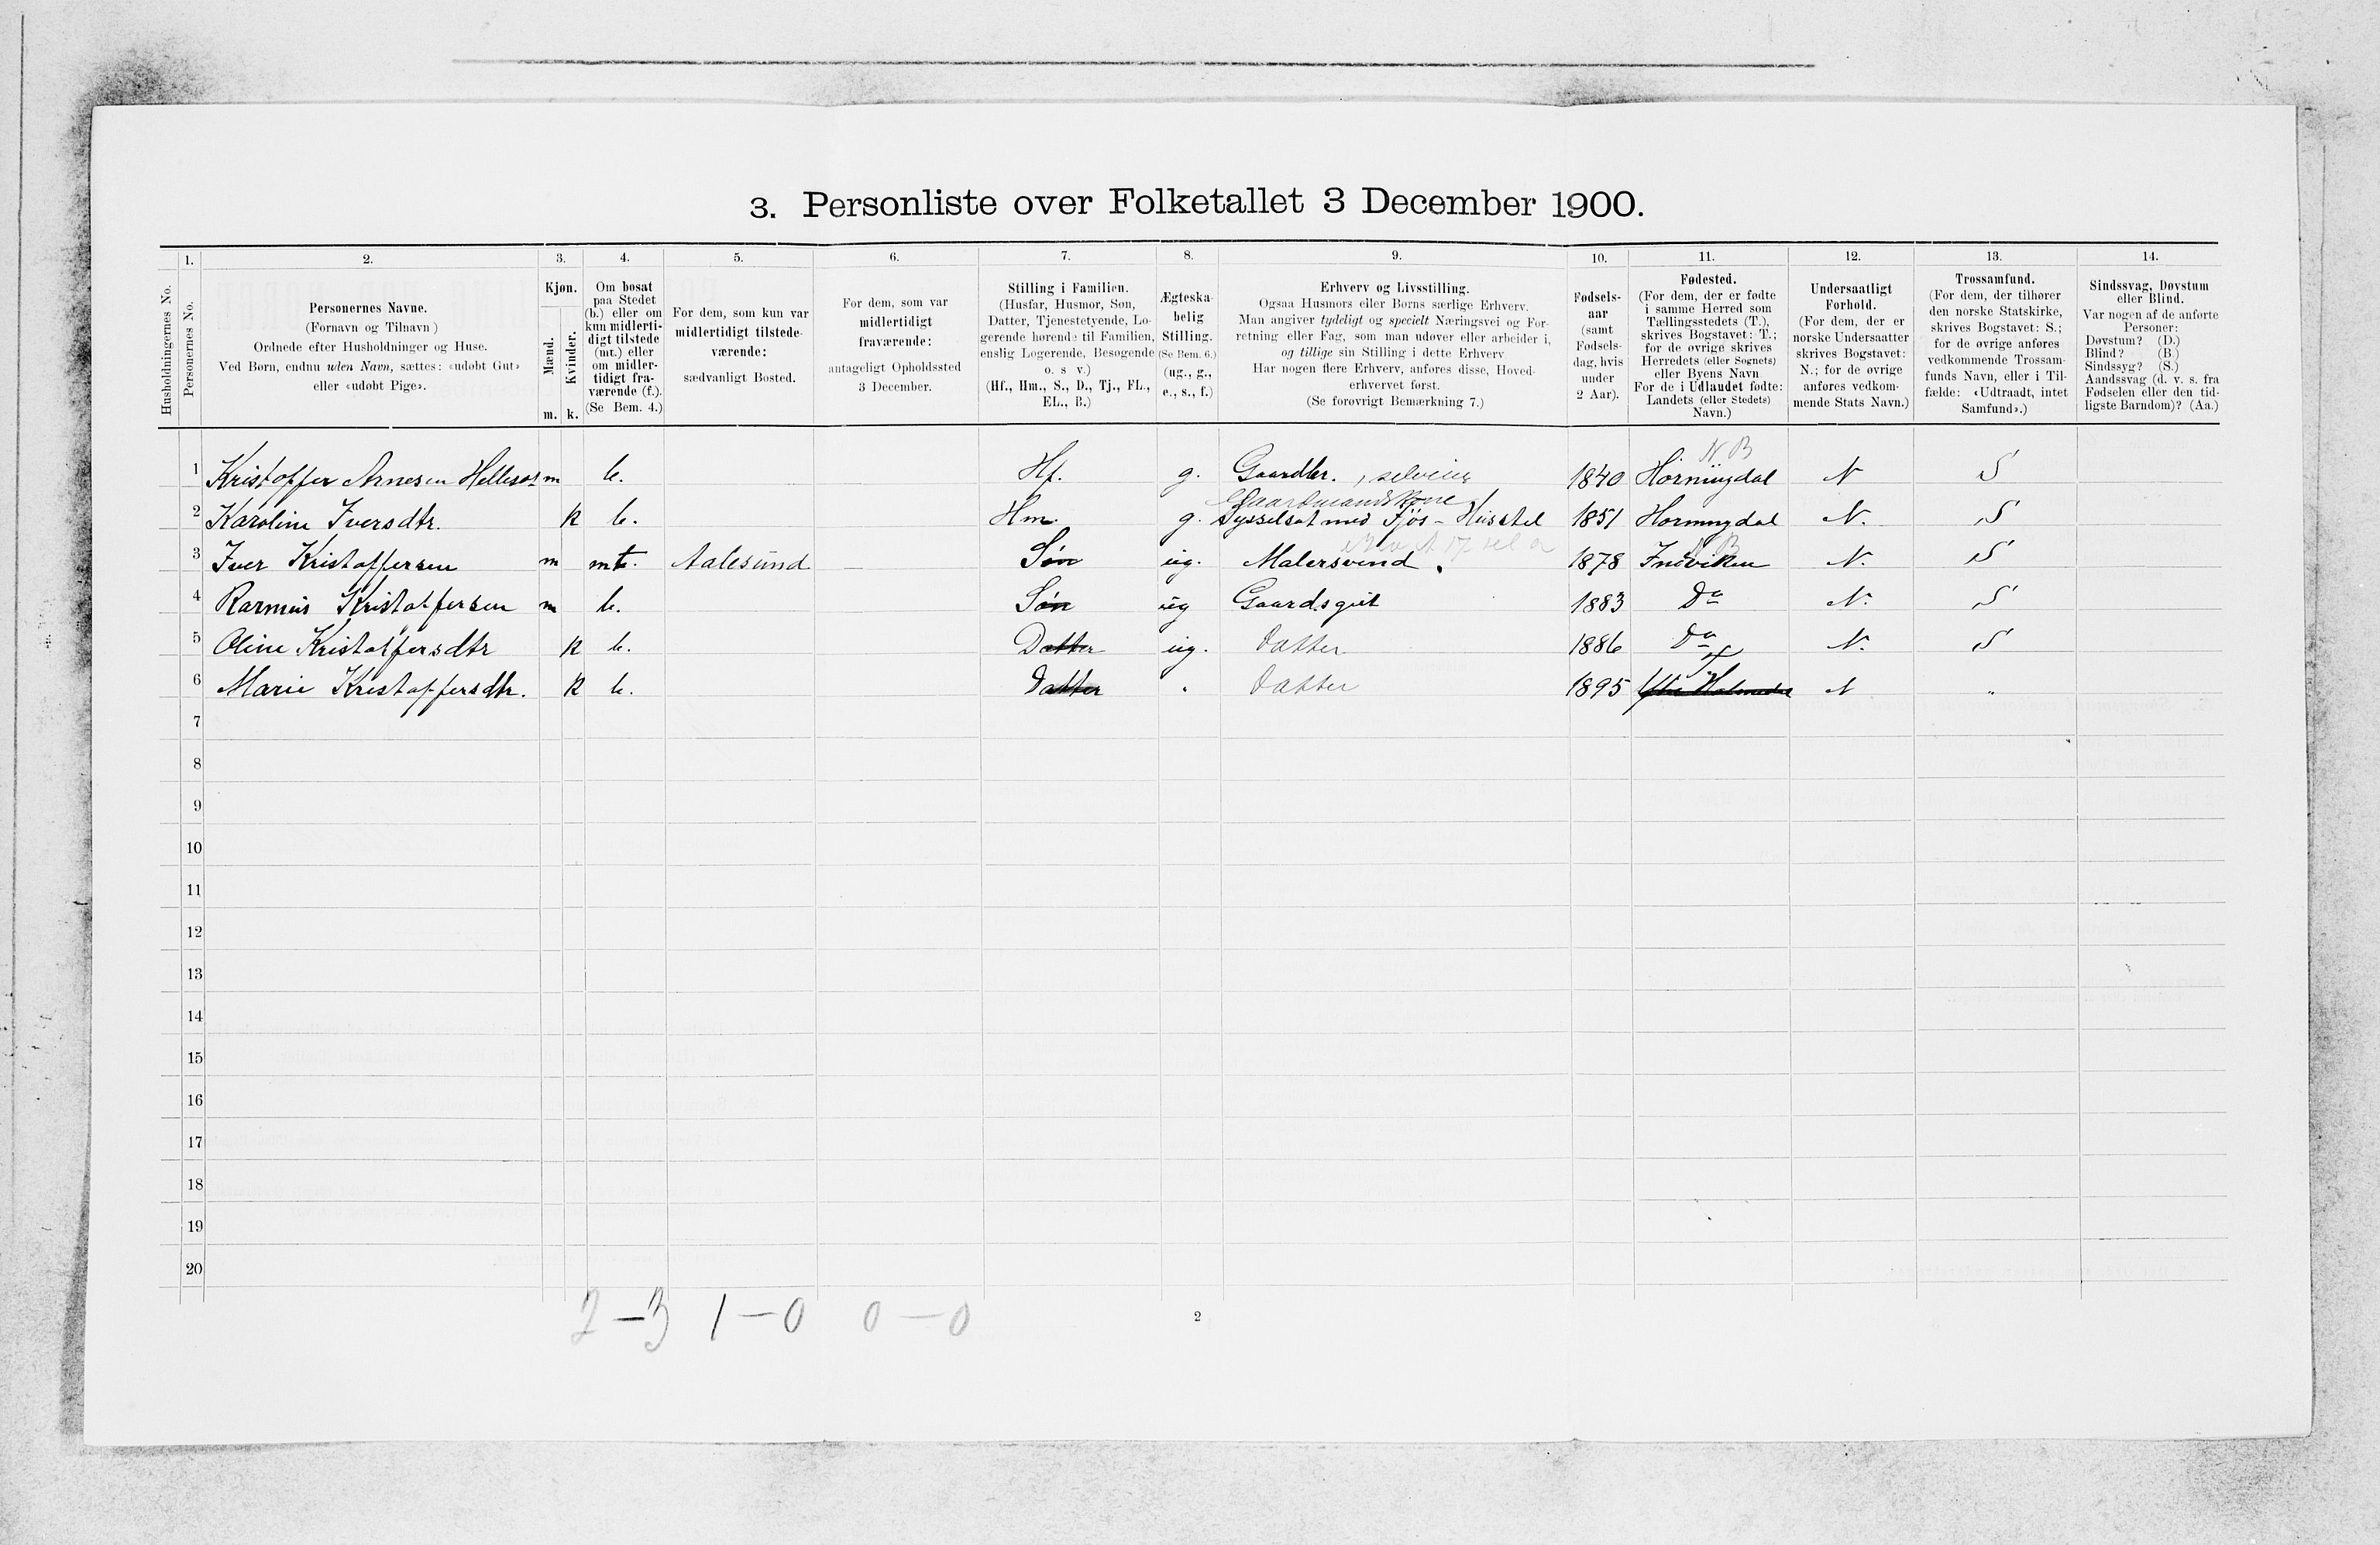 3. Personliste over Folketallet 3 December 1900.
1. 2. 3. 4. 5. 6. 7. 8. 9. 10. 11. 12. 13. 14.
Husholdningernes No.
Personernes No.
Personernes Navne.
(Fornavn og Tilnavn)
Ordnede efter Husholdninger og Huse.
Ved Børn, endnu uden Navn, sættes: «udøbt Gut»
eller «udøbt Pige».
Kjøn.
Mænd.
Kvinder.
m. k.
Om bosat
paa Stedet
(b.) eller om
kun midlerti-
digt tilstede
(mt.) eller
om midler-
tidigt fra-
værende (f.).
(Se Bem. 4.)
For dem, som kun var
midlertidigt tilstede-
værende:
sædvanligt Bosted.
For dem, som var
midlertidigt
fraværende:
antageligt Opholdssted
3 December.
Stilling i Familien.
(Husfar, Husmor, Søn,
Datter, Tjenestetyende, Lo-
gerende hørende til Familien,
enslig Logerende, Besøgende
o. s v.)
(Hf., Hm., S., D., Tj., FL.,
EL., B.)
Ægteska-
belig
Stilling.
(Se Bem. 6.)
(ug., g.,
e., s., f.)
Erhverv og Livsstilling.
Ogsaa Husmors eller Børns særlige Erhverv.
Man angiver tydeligt og specielt Næringsvei og For-
retning eller Fag, som man udøver eller arbeider i,
og tillige sin Stilling i dette Erhverv
Har nogen flere Erhverv, anføres disse, Hoved-
erhvervet først.
(Se forøvrigt Bemærkning 7.)
Fødsels-
aar
(samt
Fødsels-
dag, hvis
under
2 Aar).
Fødested.
(For dem, der er fødte
i samme Herred som
Tællingsstedets (T.),
skrives Bogstavet: T.;
for de øvrige skrives
Herredets (eller Sognets)
eller Byens Navn
For de i Udlandet fødte:
Landets (eller Stedets)
Navn.)
Undersaatligt
Forhold.
(For dem, der er
norske Undersaatter
skrives Bogstavet:
N.; for de øvrige
anføres vedkom-
mende Stats Navn.)
Trossamfund.
(For dem, der tilhører
den norske Statskirke,
skrives Bogstavet: S.;
for de øvrige anføres
vedkommende Trossam-
funds Navn, eller i Til-
fælde: «Udtraadt, intet
Samfund».)
Sindssvag, Døvstum
eller Blind.
Var nogen af de anførte
Personer:
Døvstum? (D.)
Blind? (B.)
Sindssyg? (S.)
Aandssvag (d. v. s. fra
Fødselen eller den tid-
ligste Barndom)? (Aa.)
N B
1 Kristoffer Arnesen m b. Hf. g. Gaardbr. , selveier 1840 Horningdal N S
Gaardmandskone
2 Karoline Iversdtr. k b. Hm. g. Sysselsat med Fjøs - Husstel 1851 Horningdal N. S
3 Iver Kristoffersen m mt. Aalesund Søn ug. Malersvend 1878 Indviken N. S
4 Rasmus Kristoffersen m b. Søn ug Gaardsgut 1883 Do N. S
5 Oline Kristoffersdtr k b. Datter ug. Datter 1886 Do N. S
6 Marie Kristoffersdtr. k b. Datter " Datter 1895 T N "
7
8
9
10
11
12
13
14
15
16
17
18
19
20
2-3 1-0 0-0
2